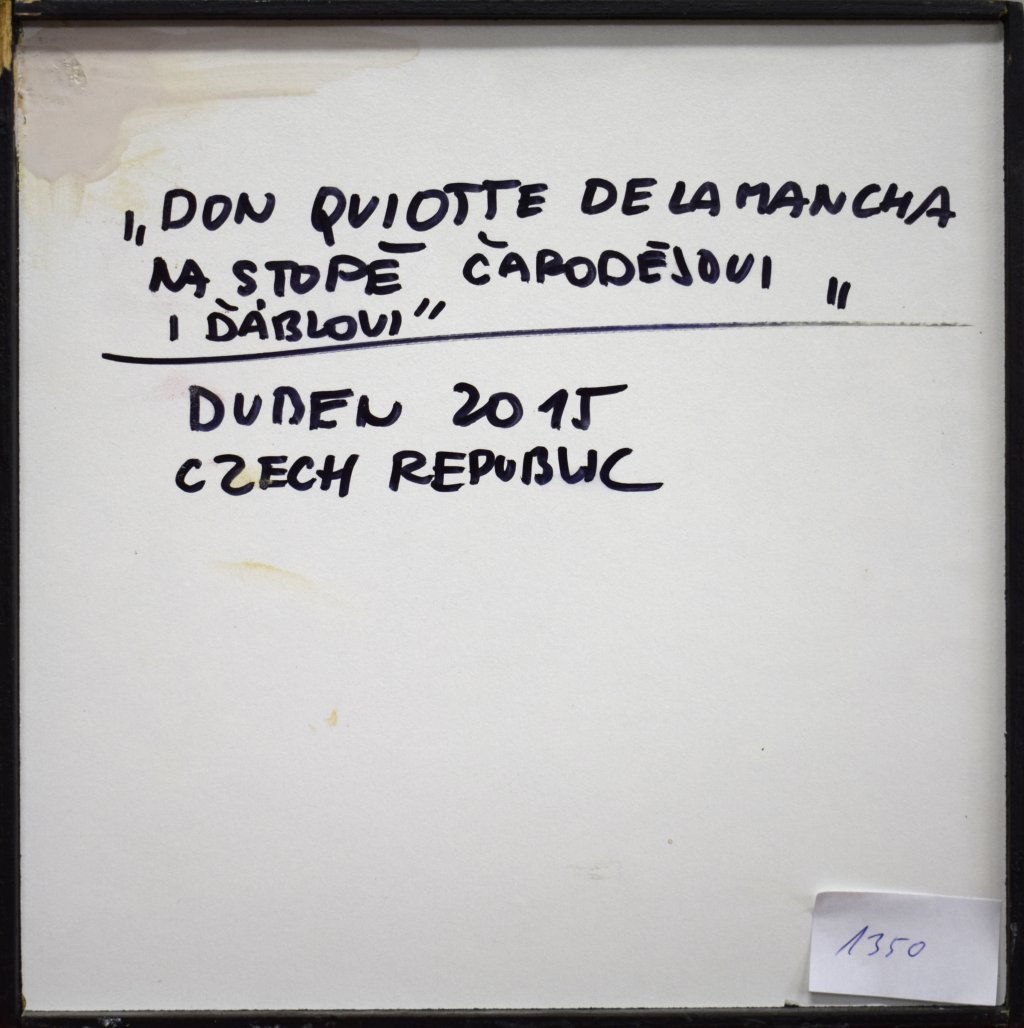 „DON QUIOTTE DE LA MANCHA
NA STOPĚ ČARODĚJOVI "
I ĎÁBLOVI"
DUBEN 2015
CZECH REPUBLIC
1350